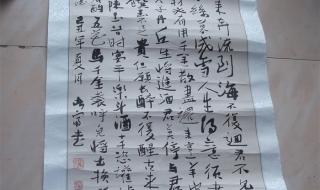 来奔流到海不復迴君不見
成雪人生得意須
材必有用千金散盡還復来烹羊
丹丘生將進酒君莫停與君
不足貴但願長醉不復醒古来
陳王昔時宴平樂斗酒十千恣
酌五花馬千金裘呼兒將出換
丑年夏月